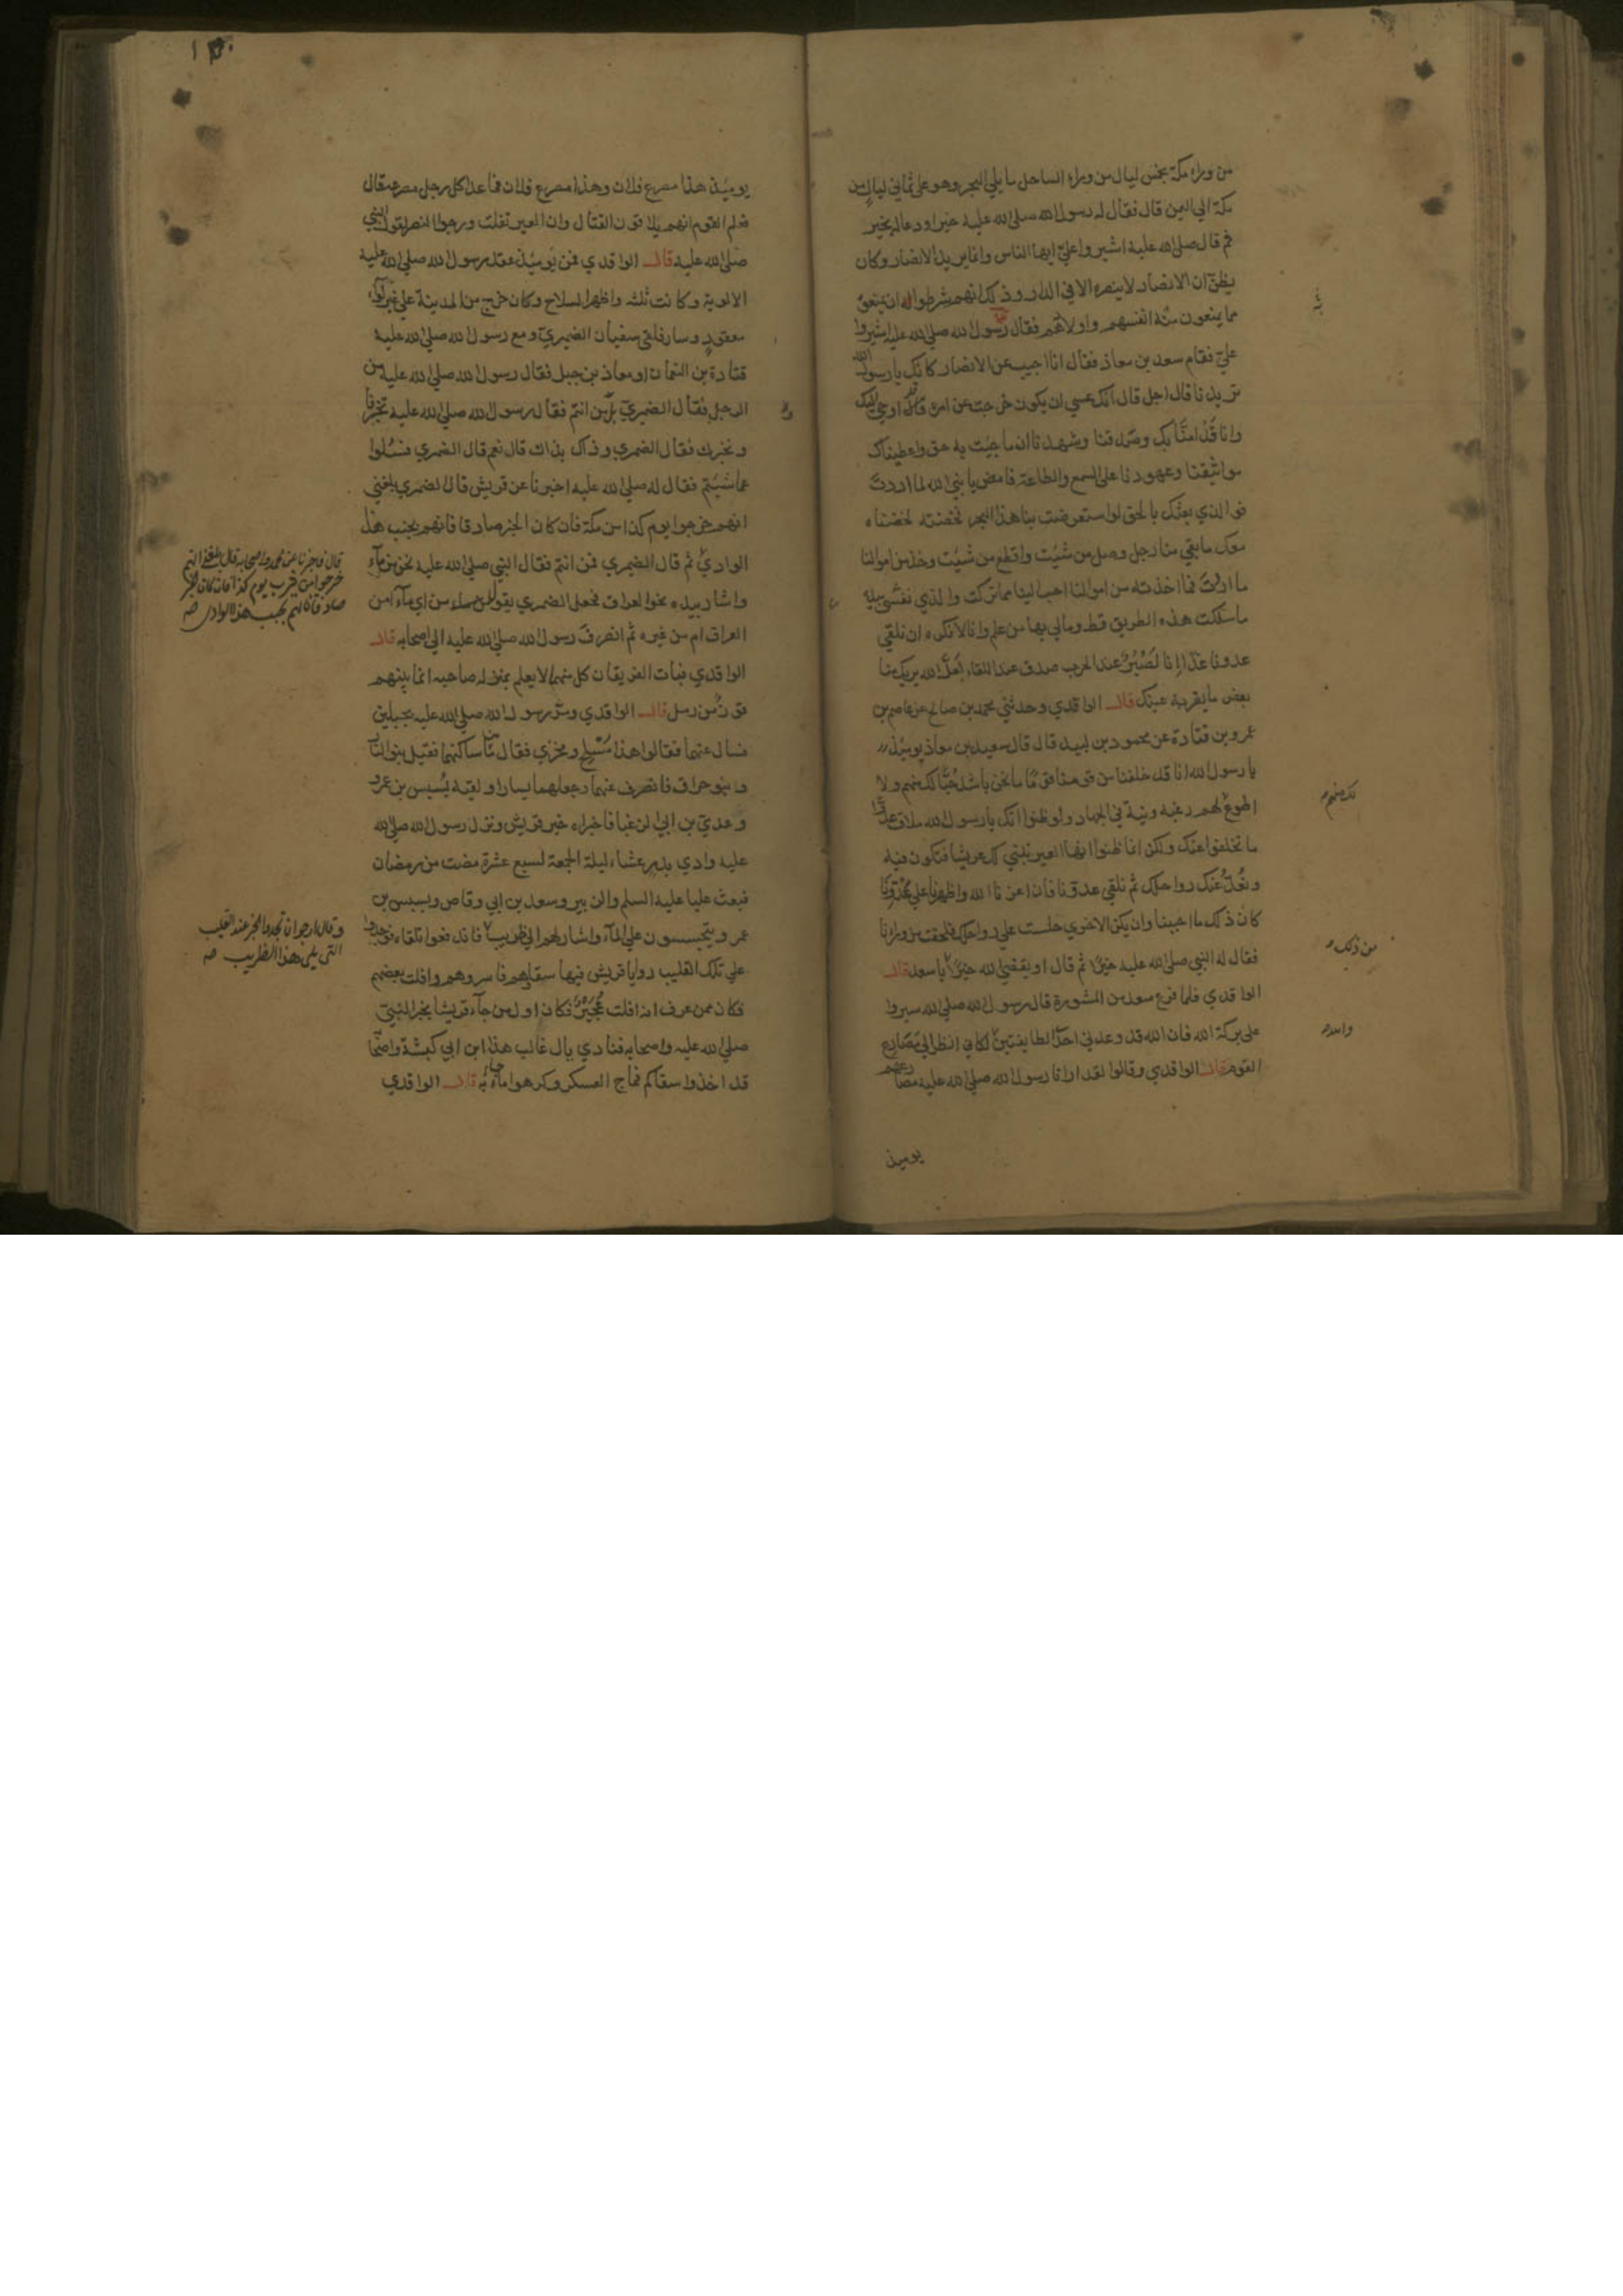 من وراء مكة بخمس ليال من وراء الساحل ما يلي البحر وهو على ثماني ليال من
مكة الي اليمن قال فقال له رسول الله صلى الله عليه خيرا ودعا له بخير
ثم قال صلى الله عليه اشيروا عليّ ايها الناس وانما يريد الانصار وكان
يظنّ ان الانصار لا ينصره الا في الدار وذلك انهم شرطوا له ان يمنعوه
مما يمنعون منه انفسهم واولادهم فقال رسول الله صلى الله عليه اشيروا
عليّ فقام سعد بن معاذ فقال انا اجيب عن الانصار كانك يا رسول الله
تريدنا قال اجل قال انك عسى ان يكون خرجت عن امر قد اوحي اليك
وانا قد امنّا بك وصدقنا وشهدنا ان ما جئت به حق واعطيناك
مواثيقنا وعهودنا على السمع والطاعة فامض يا نبي الله لما اردت
فو الذي بعثك بالحق لو استعرضت بنا هذا البحر فخضته لخضناه
معك ما بقي منا رجل وصل من شئت واقطع من شئت وخذ من اموالنا
ما اردت فما اخذته من اموالنا احب الينا مما تركت والذي نفسي بيده
ما سلكت هذه الطريق قط ومالي بها من علم وانا لا نكره ان نلقي
عدونا غدا انا لصبر عند الحرب صدق عند اللقاء لعل الله يريك منا
بعض ما يقر به عينك قال الواقدي وحدثني محمد بن صالح عن عاصم بن
عمر وبن قتادة عن محمود بن لبيد قال قال سعد بن معاذ يومئذ
يا رسول الله انا قد خلفنا من قومنا قوما ما نحن باشد حبا لك منهم ولا
اطوع لهم رغبة ونية في الجهاد ولو ظنوا انك يا رسول الله ملاق عدوا
ما تخلفوا عنك ولكن انما ظنوا انها العير نبني لك عريشا فتكون فيه
ونعد عندك رواحلك ثم نلقي عدونا فان اعزنا الله واظهرنا على عدونا
كان ذلك ما احببنا وان يكن الاخري جلست على رواحلك فلحقت من وراءنا
فقال له النبي صلى الله عليه خيرا ثم قال او يقضي الله خيرا يا سعد قال
الواقدي فلما فرغ سعد من المشورة قال رسول الله صلى الله سيروا
على بركة الله فان الله قد وعدني احدي الطايفتين لكاني انظر الى مصارع
القوم قال الواقدي وقالوا لقد ارانا رسول الله صلى الله عليه مصارعهم
لك منهم
من ذلك
والله
يومئذ
يومئذ هذا مصرع فلان وهذا مصرع فلان فما عدا كل رجل مصرعه قال
فعلم القوم انهم يلاقون القتال وان العير تفلت ورجوا النصر لقول النبي
صلى الله عليه قال الواقدي فمن يومئذ عقد رسول الله صلى الله عليه
الالوية وكانت ثلثة واظهر السلاح وكان خرج من المدينة على غير لواء
معقود وسار فلقي سفيان الضمري ومع رسول الله صلى الله عليه
قتادة بن النعمان او معاذ بن جبل فقال رسول الله صلى الله عليه من
الرجل فقال الضمري بل من انتم فقال رسول الله صلى الله عليه تخبرنا
ونخبرك فقال الضمري وذاك بذاك قال نعم قال الضمري فسلوا
عما شئتم فقال له صلى الله عليه اخبرنا عن قريش قال الضمري بلغني
انهم خرجوا يوم كذا من مكة فان كان الخبر صادقا فانهم بجنب هذا
الوادي ثم قال الضمري فمن انتم فقال النبي صلى الله عليه نحن من ماء
واشار بيده نحو العراق فجعل الضمري يقول من ماء من اي ماء امن
العراق ام من غيره ثم انصرف رسول الله صلى الله عليه الى اصحابه قال
الواقدي فبات الفريقان كل منهما لا يعلم بمنزل صاحبه انما بينهم
قوز من رمل قال الواقدي ومر رسول الله صلى الله عليه بجبلين
فسال عنهما فقالوا هذا مسلح ومخري فقال من ساكنهما فقيل بنو النار
وبنو حراق فانصرف عنهما وجعلهما يسارا ولقيه بسبس بن عمرو
وعدي بن ابي الزغبا فاخبراه خبر قريش ونزل رسول الله صلى الله
عليه وادي بدر عشاء ليلة الجمعة لسبع عشرة مضت من رمضان
فبعث عليا عليه السلم والزبير وسعد بن ابي وقاص وبسبس بن
عمرو يتجسسون على الماء واشار لهم الى ظريب فاندفعوا تلقاءه فوجدوا
على تلك القليب روايا قريش فيها سقاؤهم فاسروهم وافلت بعضهم
فكان ممن عرف انه افلت عجير فكان اول من جاء قريشا بخبر النبي
صلى الله عليه واصحابه فنادي يال غالب هذا ابن ابي كبشة واصحابه
قد اخذوا سقاكم فماج العسكر وكرهوا ما جاء به قال الواقدي
قال فاخبرنا عن محمد واصحابه قال بلغني انهم
خرجوا من يثرب يوم كذا فان كان الخبر
صادقا فانهم بجنب هذا الوادي صه
وقال ارجوا ان تجدوا الخبر عند القليب
التي يلي هذا الظريب صه